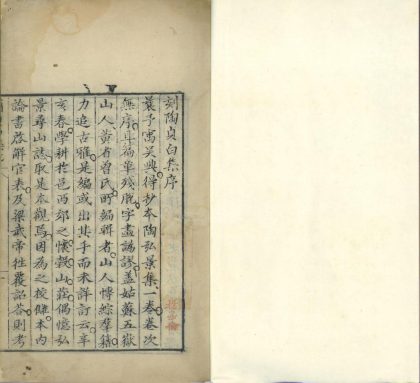 刻陶貞白集序
曩予寓吴興得抄本陶弘景集一卷卷次
無序耳編单殘脱字畫譌謬盖姑蘇五嶽
山人黄省曾氏所編輯者山人博綜羣籍
力追古雅是編或出其手而未詳訂云辛
亥春學耕於邑西郊之懷穀山莊偶憶弘
景尋山誌取是本觀焉因為之校讎本内
論書啟解官表及梁武帝往覆詔荅則考